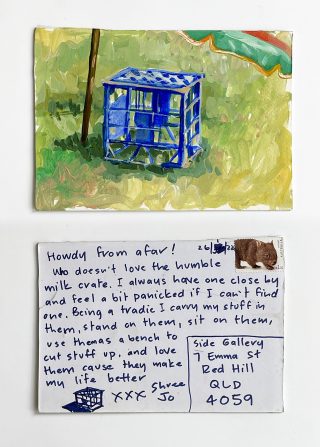 Howdy from afar!
26/ /22
Who doesn't love the humble
milk crate. I always have one close by
and feel a bit panicked if I can't find
one. Being a tradie I carry my stuff in
them, stand on them, sit on them,
use them as a bench to
cut stuff up, and love
them cause they make
my life better
xxx Shree
Jo
Side Gallery
7 Emma St
Red Hill
QLD
4059